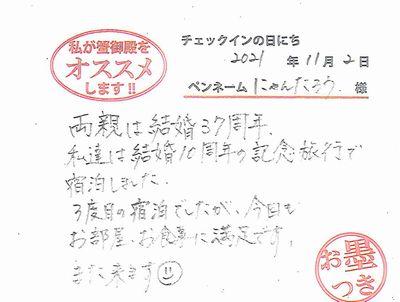 私が蟹御殿を
オススメ
します!!
チェックインの日にち
2021 年 11月 2日
ペンネーム にゃんたろう 様
両親は結婚37周年、
私達は結婚10周年の記念旅行で
宿泊しました。
3度目の宿泊でしたが、今回も
お部屋、お食事に満足です。
また来ます☺
お墨
つき